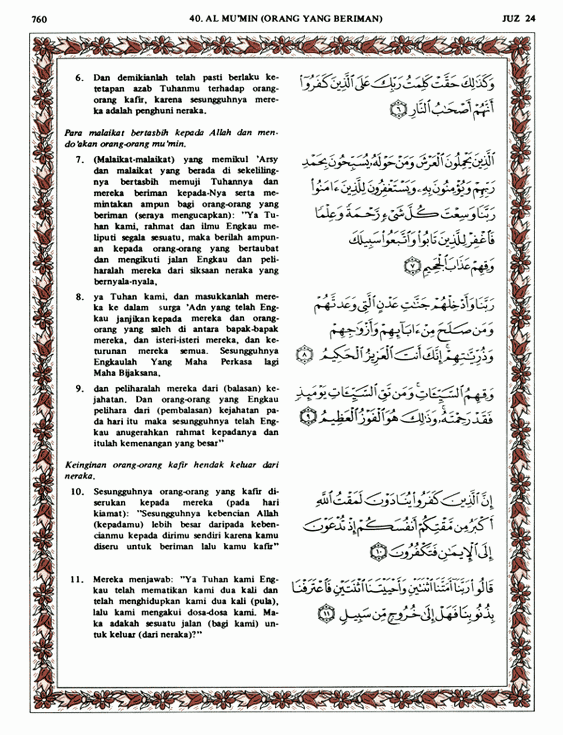 760 40. AL MU'MIN (ORANG YANG BERIMAN) JUZ 24
6. Dan demikianlah telah pasti berlaku ke-
tetapan azab Tuhanmu terhadap orang-
orang kafir, karena sesungguhnya mere-
ka adalah penghuni neraka.
وَكَذَٰلِكَ حَقَّتْ كَلِمَتُ رَبِّكَ عَلَى الَّذِينَ كَفَرُوا
أَنَّهُمْ أَصْحَٰبُ النَّارِ ۝٦
Para malaikat bertasbih kepada Allah dan men-
do'akan orang-orang mu'min.
7. (Malaikat-malaikat) yang memikul 'Arsy
dan malaikat yang berada di sekeliling-
nya bertasbih memuji Tuhannya dan
mereka beriman kepada-Nya serta me-
mintakan ampun bagi orang-orang yang
beriman (seraya mengucapkan): "Ya Tu-
han kami, rahmat dan ilmu Engkau me-
liputi segala sesuatu, maka berilah ampun-
an kepada orang-orang yang bertaubat
dan mengikuti jalan Engkau dan peli-
haralah mereka dari siksaan neraka yang
bernyala-nyala,
الَّذِينَ يَحْمِلُونَ الْعَرْشَ وَمَنْ حَوْلَهُ يُسَبِّحُونَ بِحَمْدِ
رَبِّهِمْ وَيُؤْمِنُونَ بِهِ وَيَسْتَغْفِرُونَ لِلَّذِينَ ءَامَنُوا
رَبَّنَا وَسِعْتَ كُلَّ شَيْءٍ رَّحْمَةً وَعِلْمًا
فَاغْفِرْ لِلَّذِينَ تَابُوا وَاتَّبَعُوا سَبِيلَكَ
وَقِهِمْ عَذَابَ الْجَحِيمِ ۝٧
8. ya Tuhan kami, dan masukkanlah mere-
ka ke dalam surga 'Adn yang telah Eng-
kau janjikan kepada mereka dan orang-
orang yang saleh di antara bapak-bapak
mereka, dan isteri-isteri mereka, dan ke-
turunan mereka semua. Sesungguhnya
Engkaulah Yang Maha Perkasa lagi
Maha Bijaksana,
رَبَّنَا وَأَدْخِلْهُمْ جَنَّٰتِ عَدْنٍ الَّتِي وَعَدتَّهُمْ
وَمَن صَلَحَ مِنْ ءَابَائِهِمْ وَأَزْوَٰجِهِمْ
وَذُرِّيَّٰتِهِمْ إِنَّكَ أَنتَ الْعَزِيزُ الْحَكِيمُ ۝٨
9. dan peliharalah mereka dari (balasan) ke-
jahatan. Dan orang-orang yang Engkau
pelihara dari (pembalasan) kejahatan pa-
da hari itu maka sesungguhnya telah Eng-
kau anugerahkan rahmat kepadanya dan
itulah kemenangan yang besar"
وَقِهِمُ السَّيِّئَاتِ وَمَن تَقِ السَّيِّئَاتِ يَوْمَئِذٍ
فَقَدْ رَحِمْتَهُ وَذَٰلِكَ هُوَ الْفَوْزُ الْعَظِيمُ ۝٩
Keinginan orang-orang kafir hendak keluar dari
neraka.
10. Sesungguhnya orang-orang yang kafir di-
serukan kepada mereka (pada hari
kiamat): "Sesungguhnya kebencian Allah
(kepadamu) lebih besar daripada keben-
cianmu kepada dirimu sendiri karena kamu
diseru untuk beriman lalu kamu kafir"
إِنَّ الَّذِينَ كَفَرُوا يُنَادَوْنَ لَمَقْتُ اللَّهِ
أَكْبَرُ مِن مَّقْتِكُمْ أَنفُسَكُمْ إِذْ تُدْعَوْنَ
إِلَى الْإِيمَٰنِ فَتَكْفُرُونَ ۝١٠
11. Mereka menjawab: "Ya Tuhan kami Eng-
kau telah mematikan kami dua kali dan
telah menghidupkan kami dua kali (pula),
lalu kami mengakui dosa-dosa kami. Ma-
ka adakah sesuatu jalan (bagi kami) un-
tuk keluar (dari neraka)?"
قَالُوا رَبَّنَا أَمَتَّنَا اثْنَتَيْنِ وَأَحْيَيْتَنَا اثْنَتَيْنِ فَاعْتَرَفْنَا
بِذُنُوبِنَا فَهَلْ إِلَىٰ خُرُوجٍ مِّن سَبِيلٍ ۝١١